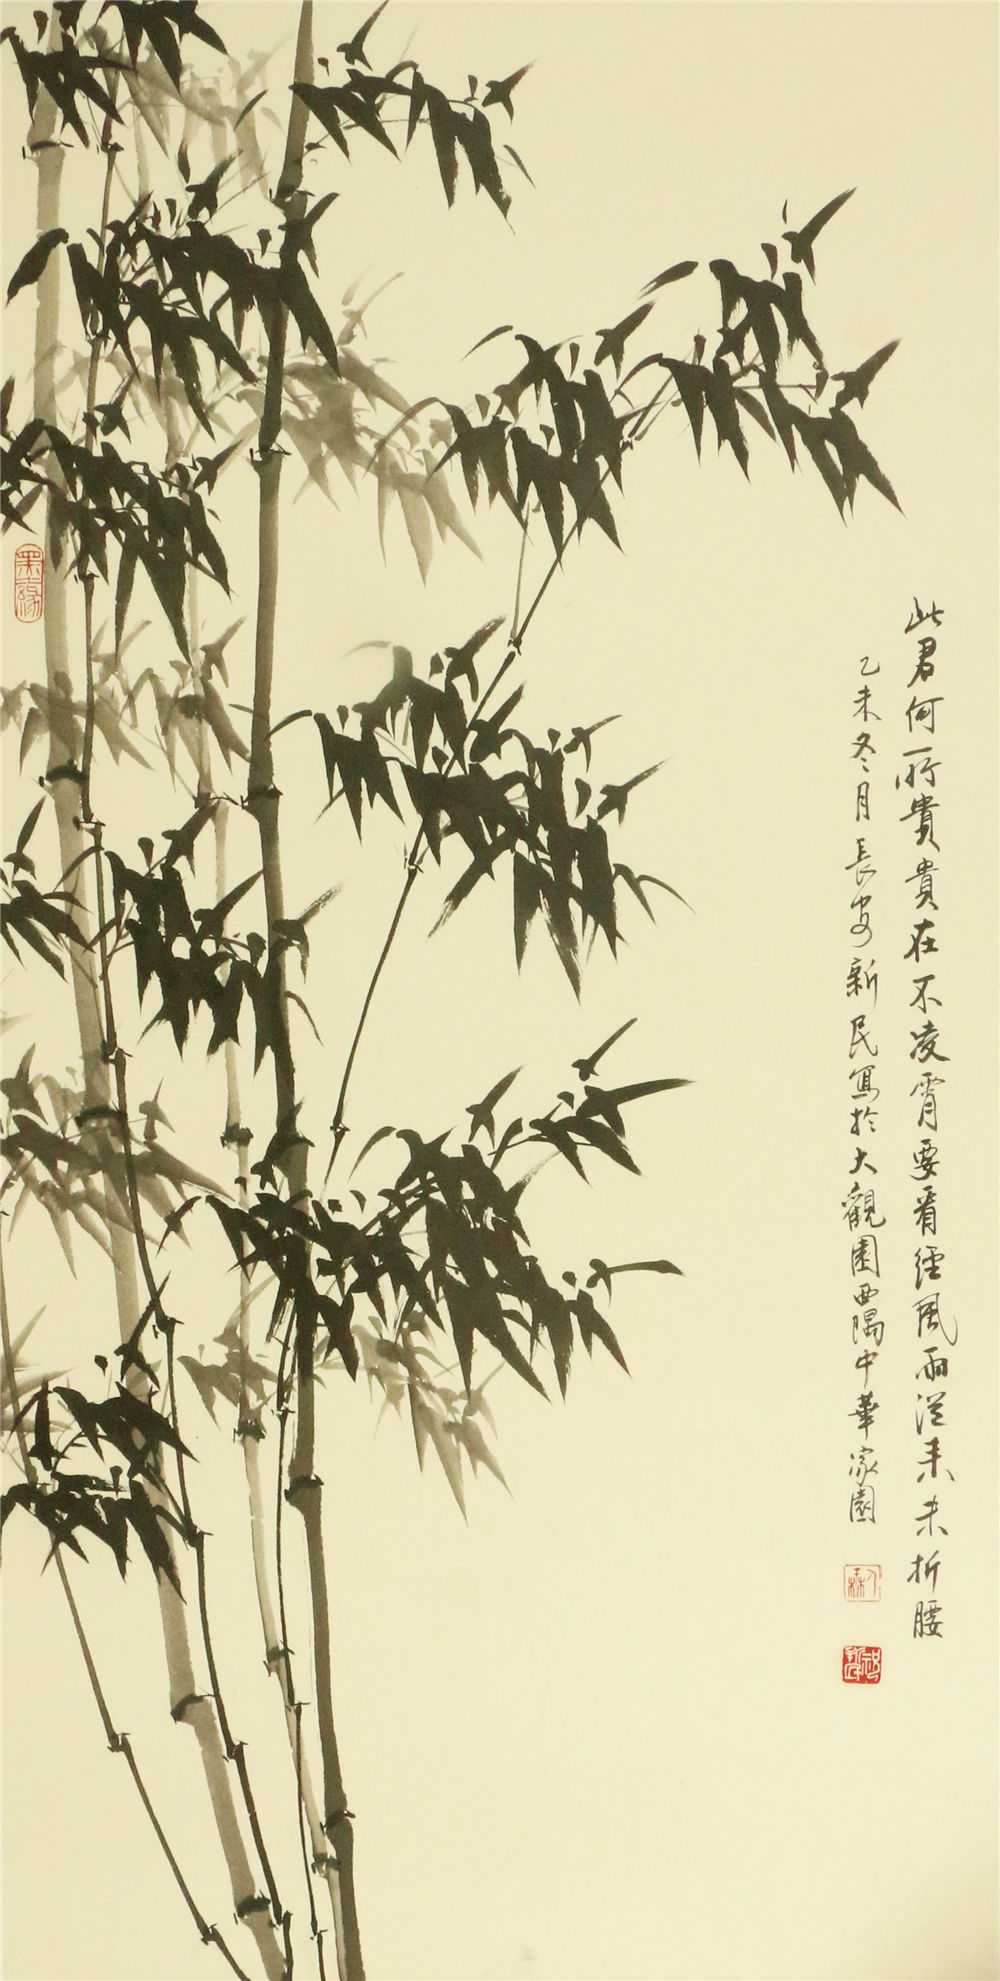 此君何所貴貴在不凌霄要看經風雨從来未折腰
乙未冬月長安新民寫於大觀園西隅中華家園
墨緣